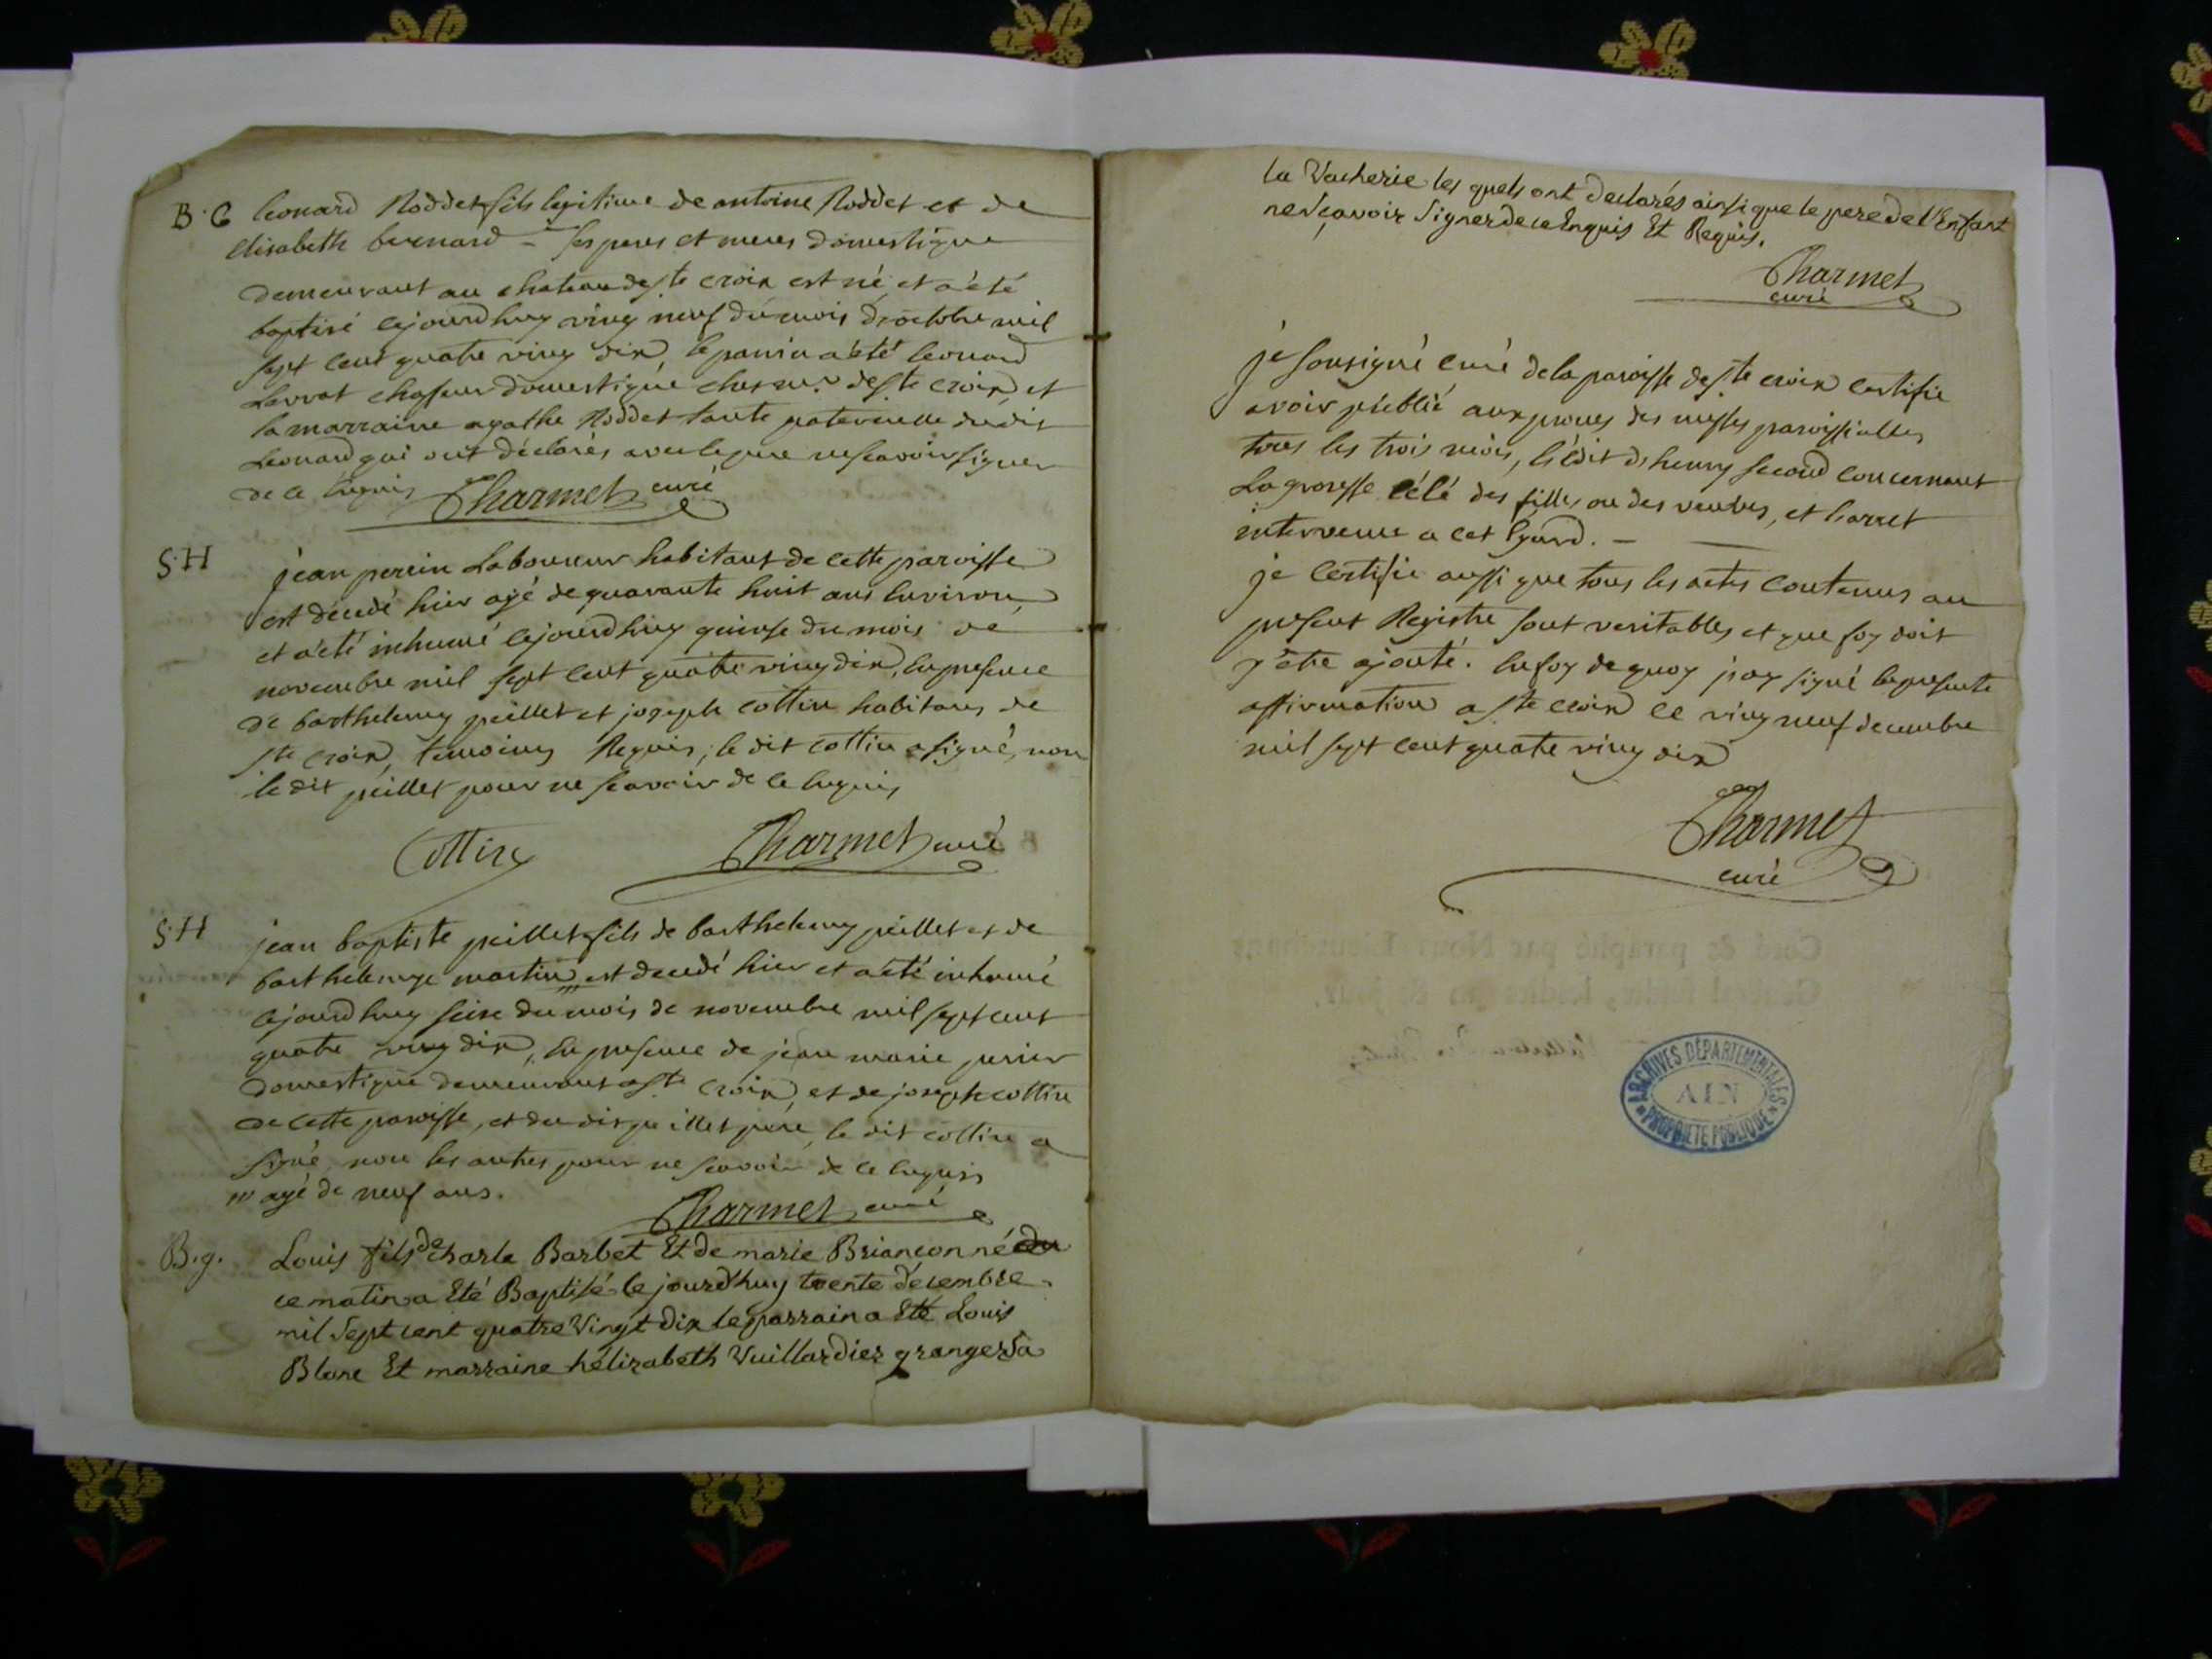 B. G leonard Noddet fils legitime de antoine Noddet et de
elisabeth bernard - ses peres et meres domestique
demeurant au chateau de ste croix est né et a été
baptisé cejourdhuy ving neuf du mois d'octobre mil
sept cent quatre ving dix, le parain a été leonard
chasseur domestique de ste croix, et
la marraine agathe Noddet tante paternelle dudit
Leonard qui ont déclarés avec le pere ne scavoir signer
de ce enquis Charmet curé
S. H jean perein Laboureur habitant de cette paroisse
est décédé hier agé de quarante huit ans environ,
et a été inhumé cejourdhuy quinse du mois de
novembre mil sept cent quatre ving dix, en presence
de barthelemy peillet et joseph cottin habitans de
ste croix, temoins Requis, le dit cottin a signé, non
le dit peillet pour ne scavoir de ce enquis
Cottin Charmet curé
S. H jean baptiste peillet fils de barthelemy peillet et de
barthelemye martin est decedé hier et a été inhumé
cejourdhuy seise du mois de novembre mil sept cent
quatre ving dix, en presence de jean marie perier
domestique demeurant a ste croix, et de joseph cottin
de cette paroisse, et du dit peillet pere, le dit cottin a
signé, non les autres pour ne scavoir de ce enquis
agé de neuf ans.
Charmet curé
B. g. Louis fils de charle Barbet Et de marie Briançon né
ce matin a Eté Baptisé ce jourd'huy trente décembre
mil Sept cent quatre Vingt dix le parrain a Eté Louis
Blanc Et marraine hélizabeth Vuillardier granger a
la Vacherie les quels ont declarés ainsi que le pere de l'Enfant
ne Sçavoir Signer de ce Enquis Et Requis.
Charmet
curé
je sousigné curé de la paroisse de ste croix certifie
avoir publié aux prones des messes paroissialles
tous les trois mois, l'édit d'henry second concernant
La grosesse célé des filles ou des veuves, et l'arret
intervenu a cet Egard. -
je certifie aussi que tous les actes contenus au
present Registre sont veritables et que foy doit
y être ajouté. En foy de quoy j'ay signé la presente
affirmation a ste croix ce ving neuf decembre
mil sept cent quatre ving dix
Charmet
curé
Coté & paraphé par Nous Lieutenant
Général
ARCHIVES DÉPARTEMENTALES
AIN
PROPRIÉTÉ PUBLIQUE